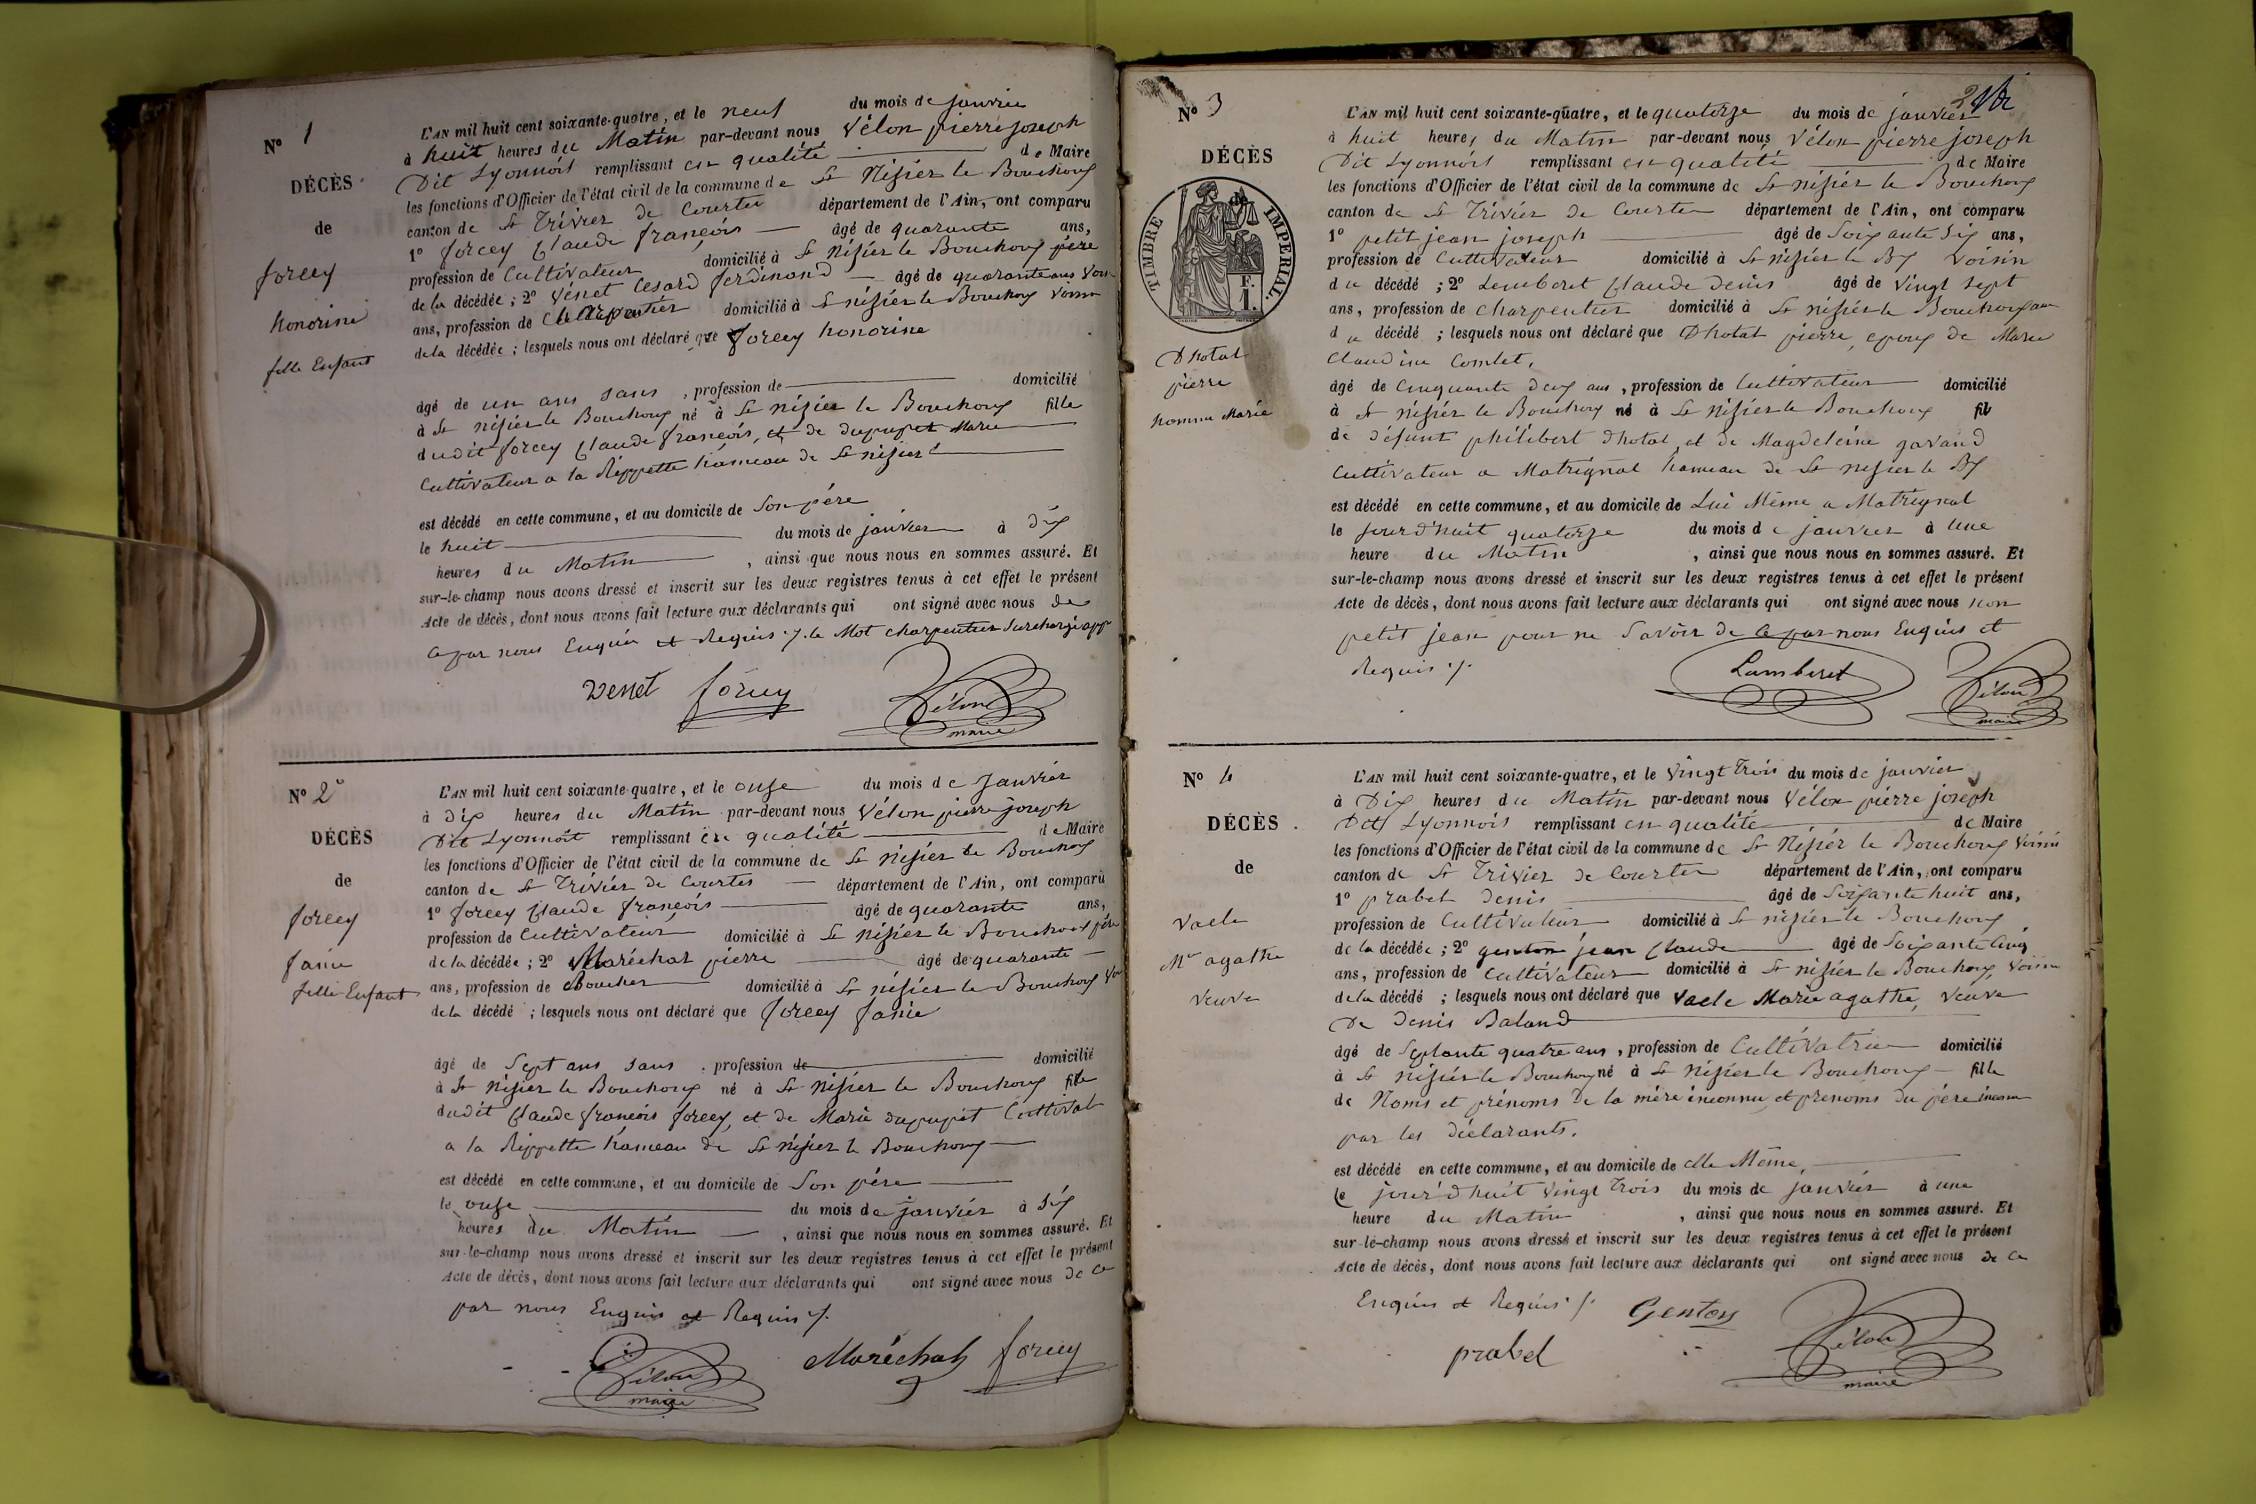 N° 1
DÉCÈS
de
forcey
honorine
fille Enfant
L'AN mil huit cent soixante-quatre, et le neuf du mois de janvier
à huit heures du Matin par-devant nous Vélon pierre joseph
Dit Lyonnois remplissant en qualité de Maire
les fonctions d'Officier de l'état civil de la commune de St Nisier le Bouchoux
canton de St Trivier de Courtes département de l'Ain, ont comparu
1° forcey Claude françois âgé de quarante ans,
profession de Cultivateur domicilié à St Nisier le Bouchoux père
de la décédée ; 2° Vénet Cesard ferdinand âgé de quarante ans Voisin
ans, profession de Charpentier domicilié à St nisier le Bouchoux voisin
de la décédée ; lesquels nous ont déclaré que forcey honorine
âgé de un ans sans , profession de domicilié
à St nisier le Bouchoux né à St nisier le Bouchoux fille
dudit forcey Claude françois, et de dupupet Marie
Cultivateur a la Rippette hameau de St nisier
est décédé en cette commune, et au domicile de Son père
le huit du mois de janvier à dix
heures du Matin , ainsi que nous nous en sommes assuré. Et
sur-le-champ nous avons dressé et inscrit sur les deux registres tenus à cet effet le présent
Acte de décès, dont nous avons fait lecture aux déclarants qui ont signé avec nous de
ce par nous Enquis et Requis ./. le Mot charpentier Surchargé app
Venet forcey Vélon
maire
N° 2
DÉCÈS
de
forcey
fanie
fille Enfant
L'AN mil huit cent soixante-quatre, et le onze du mois de Janvier
à dix heures du Matin par-devant nous Vélon pierre joseph
Dit Lyonnoit remplissant en qualité de Maire
les fonctions d'Officier de l'état civil de la commune de St nisier le Bouchoux
canton de St Trivier de Courtes département de l'Ain, ont comparu
1° forcey Claude françois âgé de quarante ans,
profession de Cultivateur domicilié à St nisier le Bouchoux père
de la décédée ; 2° Maréchat pierre âgé de quarante
ans, profession de Boucher domicilié à St nisier le Bouchoux Voi
de la décédé ; lesquels nous ont déclaré que forcey fanie
âgé de Sept ans sans , profession de domicilié
à St nisier le Bouchoux né à St nisier le Bouchoux fille
dudit Claude françois forcey, et de Marie dupupet Cultivat
a la Rippette hameau de St nisier le Bouchoux
est décédé en cette commune, et au domicile de Son père
le onze du mois de janvier à Six
heures du Matin , ainsi que nous nous en sommes assuré. Et
sur-le-champ nous avons dressé et inscrit sur les deux registres tenus à cet effet le présent
Acte de décès, dont nous avons fait lecture aux déclarants qui ont signé avec nous de ce
par nous Enquis et Requis ./.
Vélon Maréchat forcey
maire
N° 3
DÉCÈS
de
TIMBRE IMPERIAL.
F.
1.
Dhotal
pierre
homme Marié
L'AN mil huit cent soixante-quatre, et le quatorze du mois de janvier
à huit heures du Matin par-devant nous Vélon pierre joseph
Dit Lyonnois remplissant en qualité de Maire
les fonctions d'Officier de l'état civil de la commune de St nisier le Bouchoux
canton de St Trivier de Courtes département de l'Ain, ont comparu
1° petit jean joseph âgé de Soixante Six ans,
profession de Cultivateur domicilié à St nisier le Bx Voisin
du décédé ; 2° Lemberet Claude denis âgé de Vingt sept
ans, profession de Charpentier domicilié à St nisier le Bouchoux
du décédé ; lesquels nous ont déclaré que Dhotal pierre, epoux de Marie
Claudine Comtet,
âgé de Cinquante deux ans , profession de Cultivateur domicilié
à St nisier le Bouchoux né à St nisier le Bouchoux fils
de défunt philibert dhotal, et de Magdeleine gavand
Cultivateur a Matrignat hameau de St nisier le Bx
est décédé en cette commune, et au domicile de Lui Même a Matrignat
le jourd'huit quatorze du mois de janvier à Une
heure du Matin , ainsi que nous nous en sommes assuré. Et
sur-le-champ nous avons dressé et inscrit sur les deux registres tenus à cet effet le présent
Acte de décès, dont nous avons fait lecture aux déclarants qui ont signé avec nous non
petit jean pour ne Savoir de ce par nous Enquis et
Requis ./.
Lamberet Vélon
maire
N° 4
DÉCÈS
de
Vaele
Mie agathe
Veuve
L'AN mil huit cent soixante-quatre, et le Vingt Trois du mois de janvier
à Dix heures du Matin par-devant nous Vélon pierre joseph
Dit Lyonnois remplissant en qualité de Maire
les fonctions d'Officier de l'état civil de la commune de St Nisier le Bouchoux Voisin
canton de St Trivier de Courtes département de l'Ain, ont comparu
1° prabel denis âgé de Soixante huit ans,
profession de Cultivateur domicilié à St nisier le Bouchoux
de la décédée ; 2° genton jean Claude âgé de Soixante Cinq
ans, profession de Cultivateur domicilié à St nisier le Bouchoux, Voisin
de la décédé ; lesquels nous ont déclaré que Vaele Marie agathe, Veuve
De Denis Baland
âgé de Septante quatre ans , profession de Cultivatrice domicilié
à St nisier le Bouchoux né à St Nisier le Bouchoux fille
de Noms et prénoms De la mère inconnu, et prenoms du père inconnu
par les déclarants.
est décédé en cette commune, et au domicile de elle Même,
le jour'd'huit Vingt Trois du mois de janvier à une
heure du Matin , ainsi que nous nous en sommes assuré. Et
sur-le-champ nous avons dressé et inscrit sur les deux registres tenus à cet effet le présent
Acte de décès, dont nous avons fait lecture aux déclarants qui ont signé avec nous de ce
Enquis et Requis ./. Genton
prabel Vélon
maire